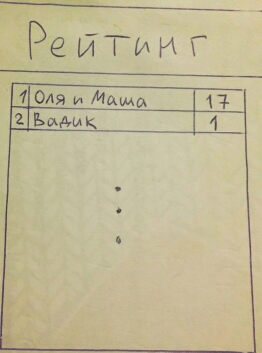 Рейтинг
1 Оля и Маша 17
2 Вадик 1